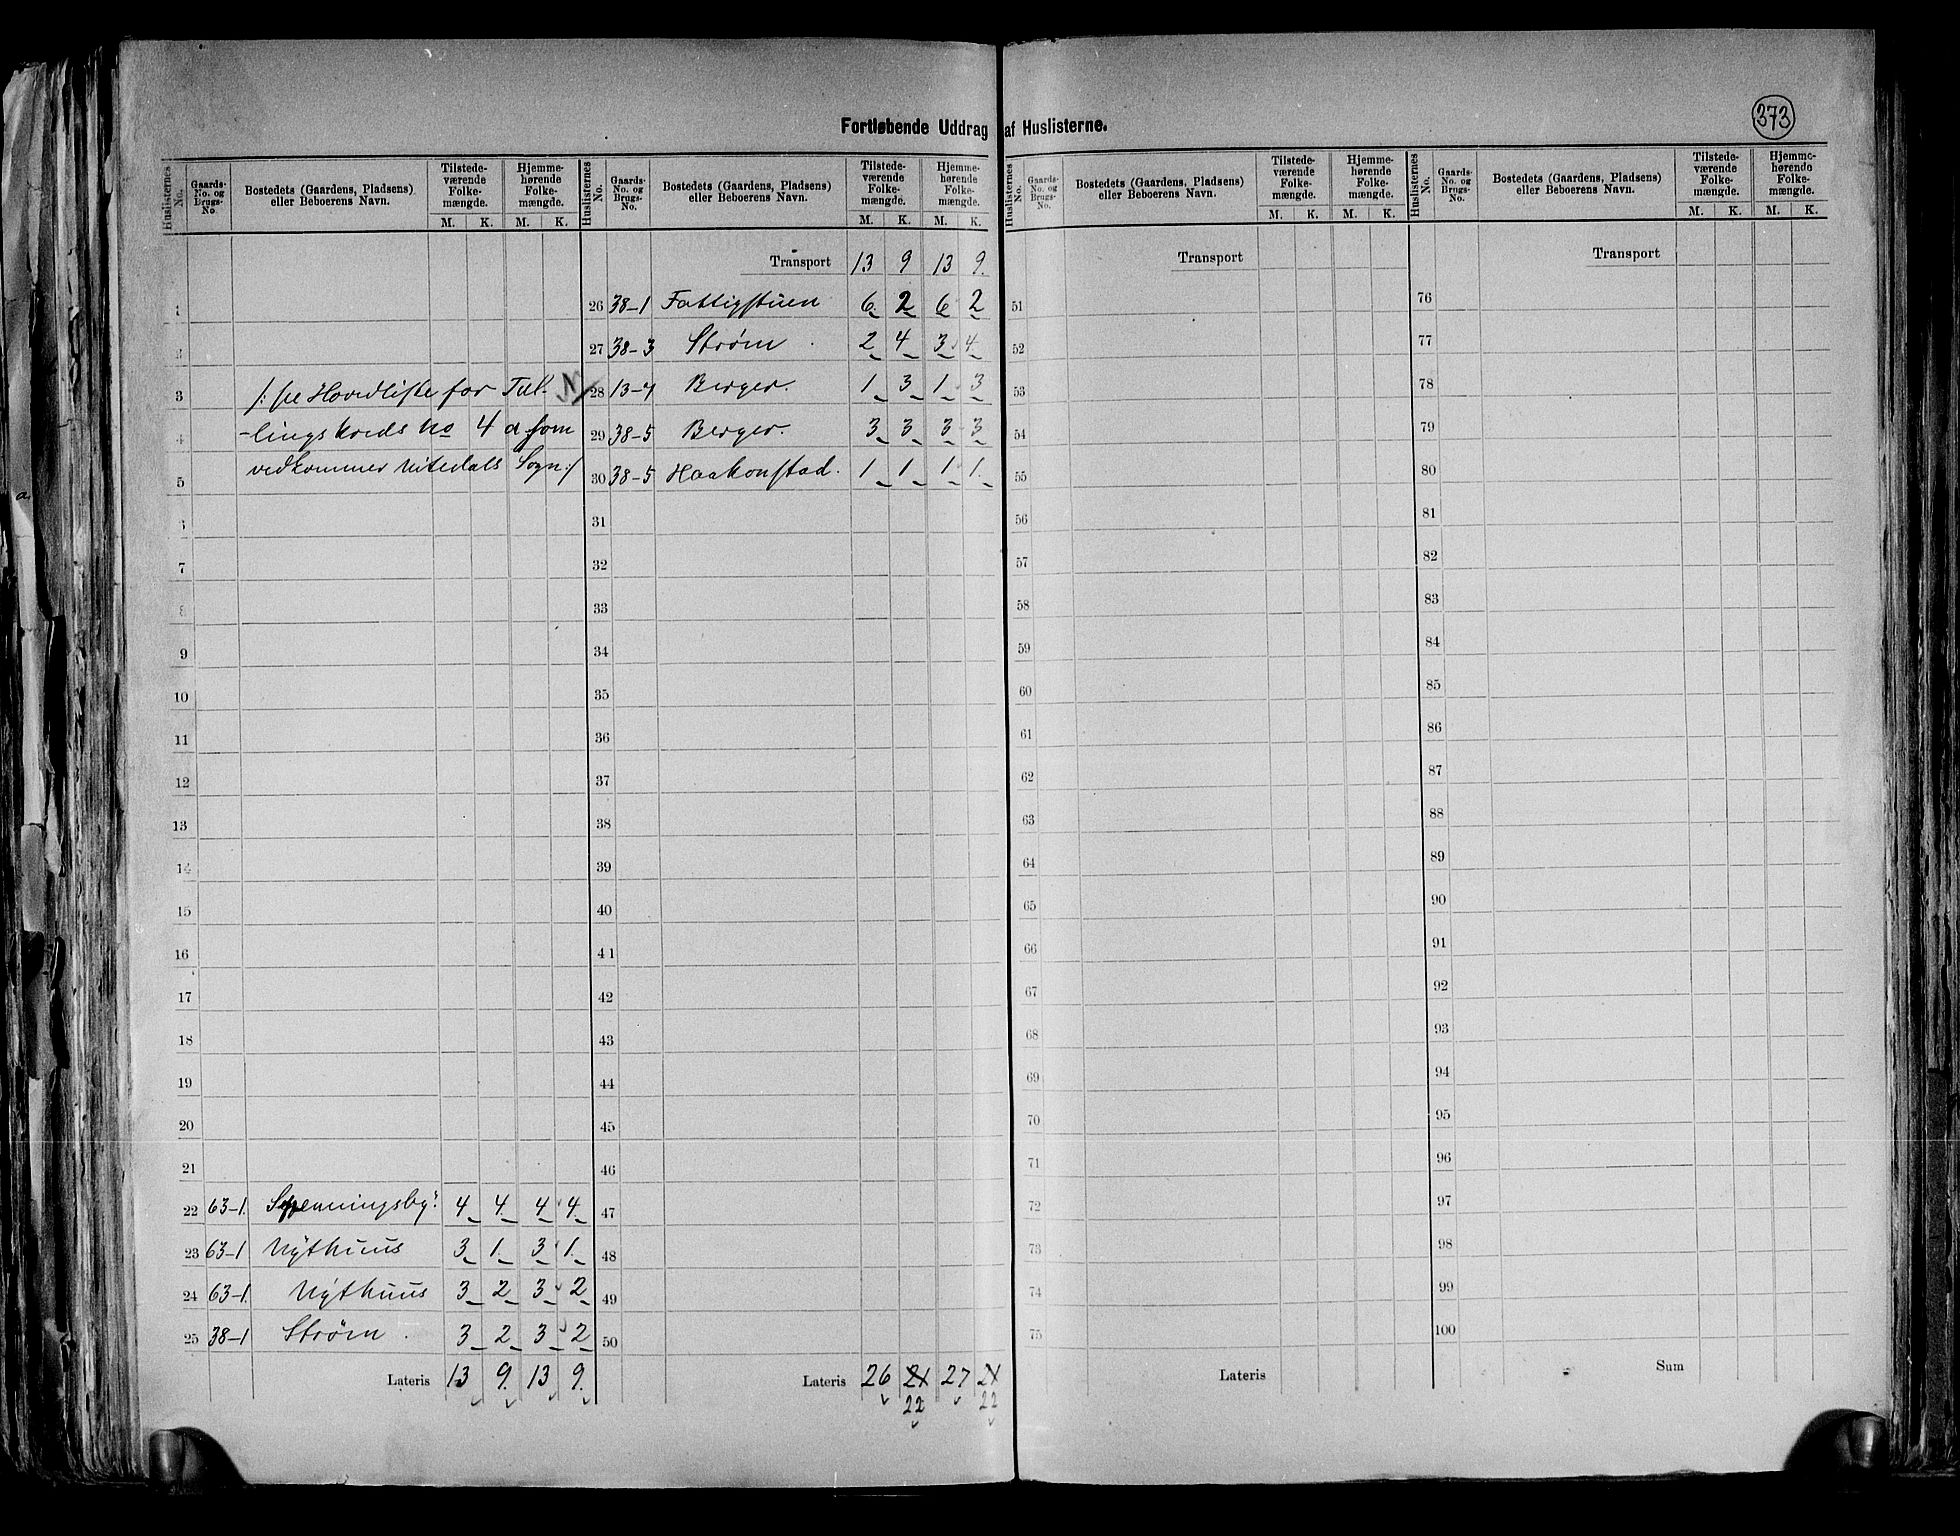 373
Fortløbende Uddrag af Huslisterne.
Huslisternes No. | Gaards-No. og Brugs-No. | Bostedets (Gaardens, Pladsens) eller Beboerens Navn. | Tilstede-værende Folke-mængde. M. K. | Hjemme-hørende Folke-mængde. M. K.
1
2
3 /: se Hovedliste for Tæl-
4 -lingskreds no 4 a som
5 vedkommer Nitedals Sogn :/
6
7
8
9
10
11
12
13
14
15
16
17
18
19
20
21
22 63-1. Spenningsby. 4 4. 4 4.
23 63-1 Nythuus 3 1. 3 1.
24 63-1. Nythuus 3 2 3 2
25 38-1 Strøm. 3 2 3 2
Lateris 13 9. 13 9.
Huslisternes No. | Gaards-No. og Brugs-No. | Bostedets (Gaardens, Pladsens) eller Beboerens Navn. | Tilstede-værende Folke-mængde. M. K. | Hjemme-hørende Folke-mængde. M. K.
Transport 13 9 13 9.
26 38-1 Fattigstuen 6 2 6 2
27 38-3 Strøm. 2 4 3 4
28 13-7 Berger. 1 3 1 3
29 38-5 Berger. 3 3 3 3
30 38-5 Haakonstad. 1 1 1 1.
31
32
33
34
35
36
37
38
39
40
41
42
43
44
45
46
47
48
49
50
Lateris 26 21 27 21
22 22
Huslisternes No. | Gaards-No. og Brugs-No. | Bostedets (Gaardens, Pladsens) eller Beboerens Navn. | Tilstede-værende Folke-mængde. M. K. | Hjemme-hørende Folke-mængde. M. K.
Transport
51
52
53
54
55
56
57
58
59
60
61
62
63
64
65
66
67
68
69
70
71
72
73
74
75
Lateris
Huslisternes No. | Gaards-No. og Brugs-No. | Bostedets (Gaardens, Pladsens) eller Beboerens Navn. | Tilstede-værende Folke-mængde. M. K. | Hjemme-hørende Folke-mængde. M. K.
Transport
76
77
78
79
80
81
82
83
84
85
86
87
88
89
90
91
92
93
94
95
96
97
98
99
100
Sum